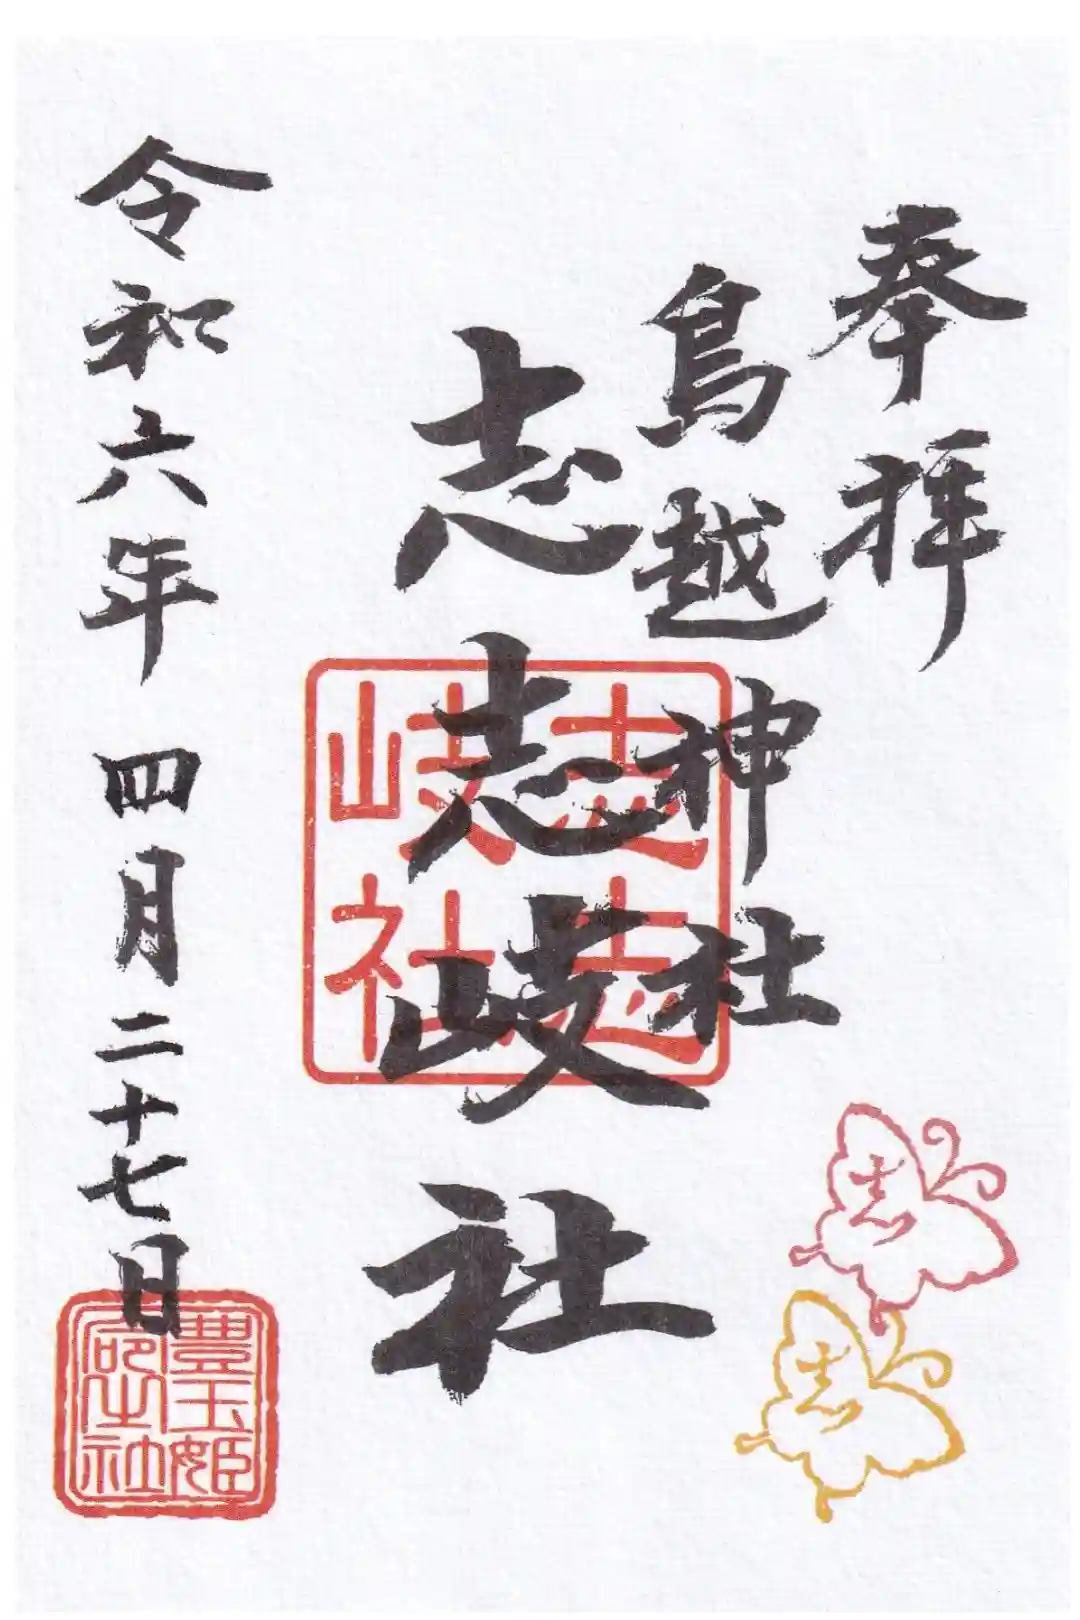 奉拝
鳥越神社
志志岐社
令和六年 四月二十七日
志志岐社
志
志
豊玉姫
之社